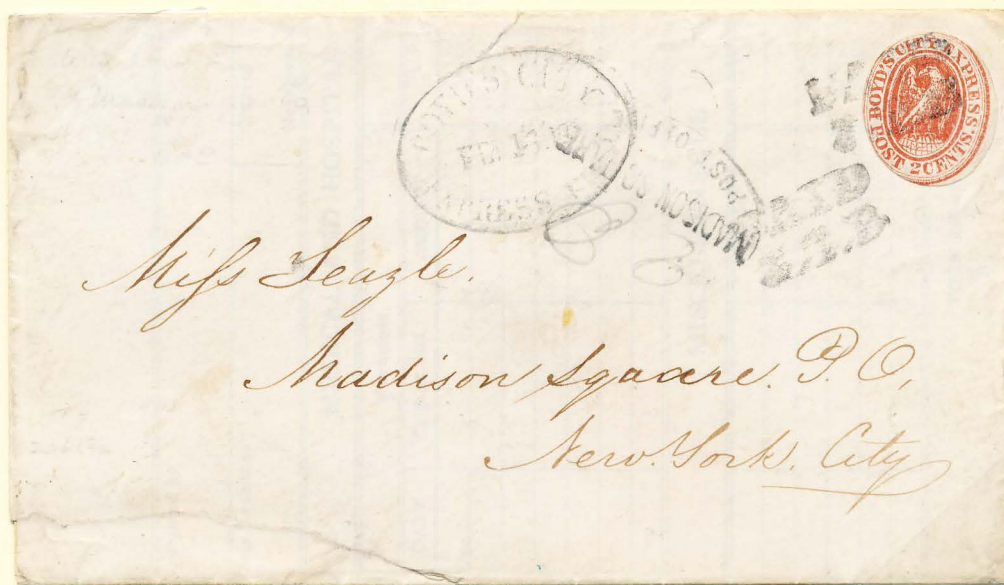 BOYD'S CITY EXPRESS.
POST 2 CENTS.
BOYD'S CITY
FEB 15
EXPRESS
MADISON SQUARE
POST OFFI
Miss Teazle.
Madison Square. P. O,
New. York. City